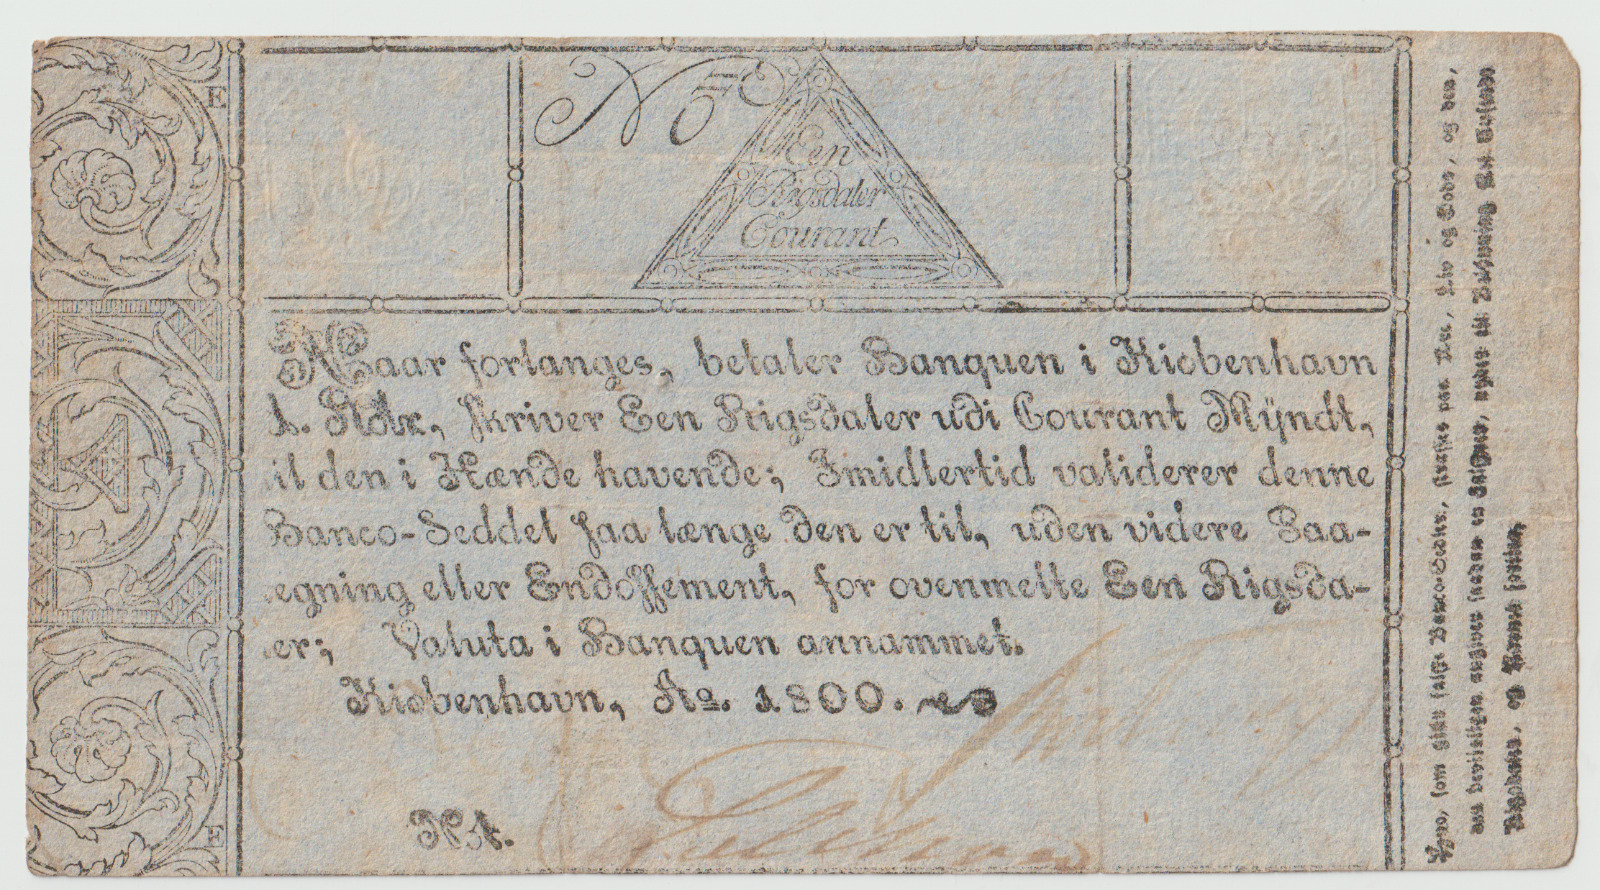 E
No
Een
Rigsdaler
Courant
Naar forlanges, betaler Banquen i Kiøbenhavn
Rdlr, skriver Een Rigsdaler udi Courant Mÿndt,
til den i Hænde havende; Imidlertid validerer denne
Banco-Seddel saa længe den er til, uden videre Paa-
egning eller Endossement, for ovenmelte Een Rigsda-
ler; Valuta i Banquen annammet.
Kiøbenhavn, Ao. 1800.
E
som giør falske Banco-Sedler, straffes paa Ære, Liv og Gods, og den,
som beviisligen angiver saadan en Falskner, nyder til Belønning
Rigsdaler, og Navnet forties.